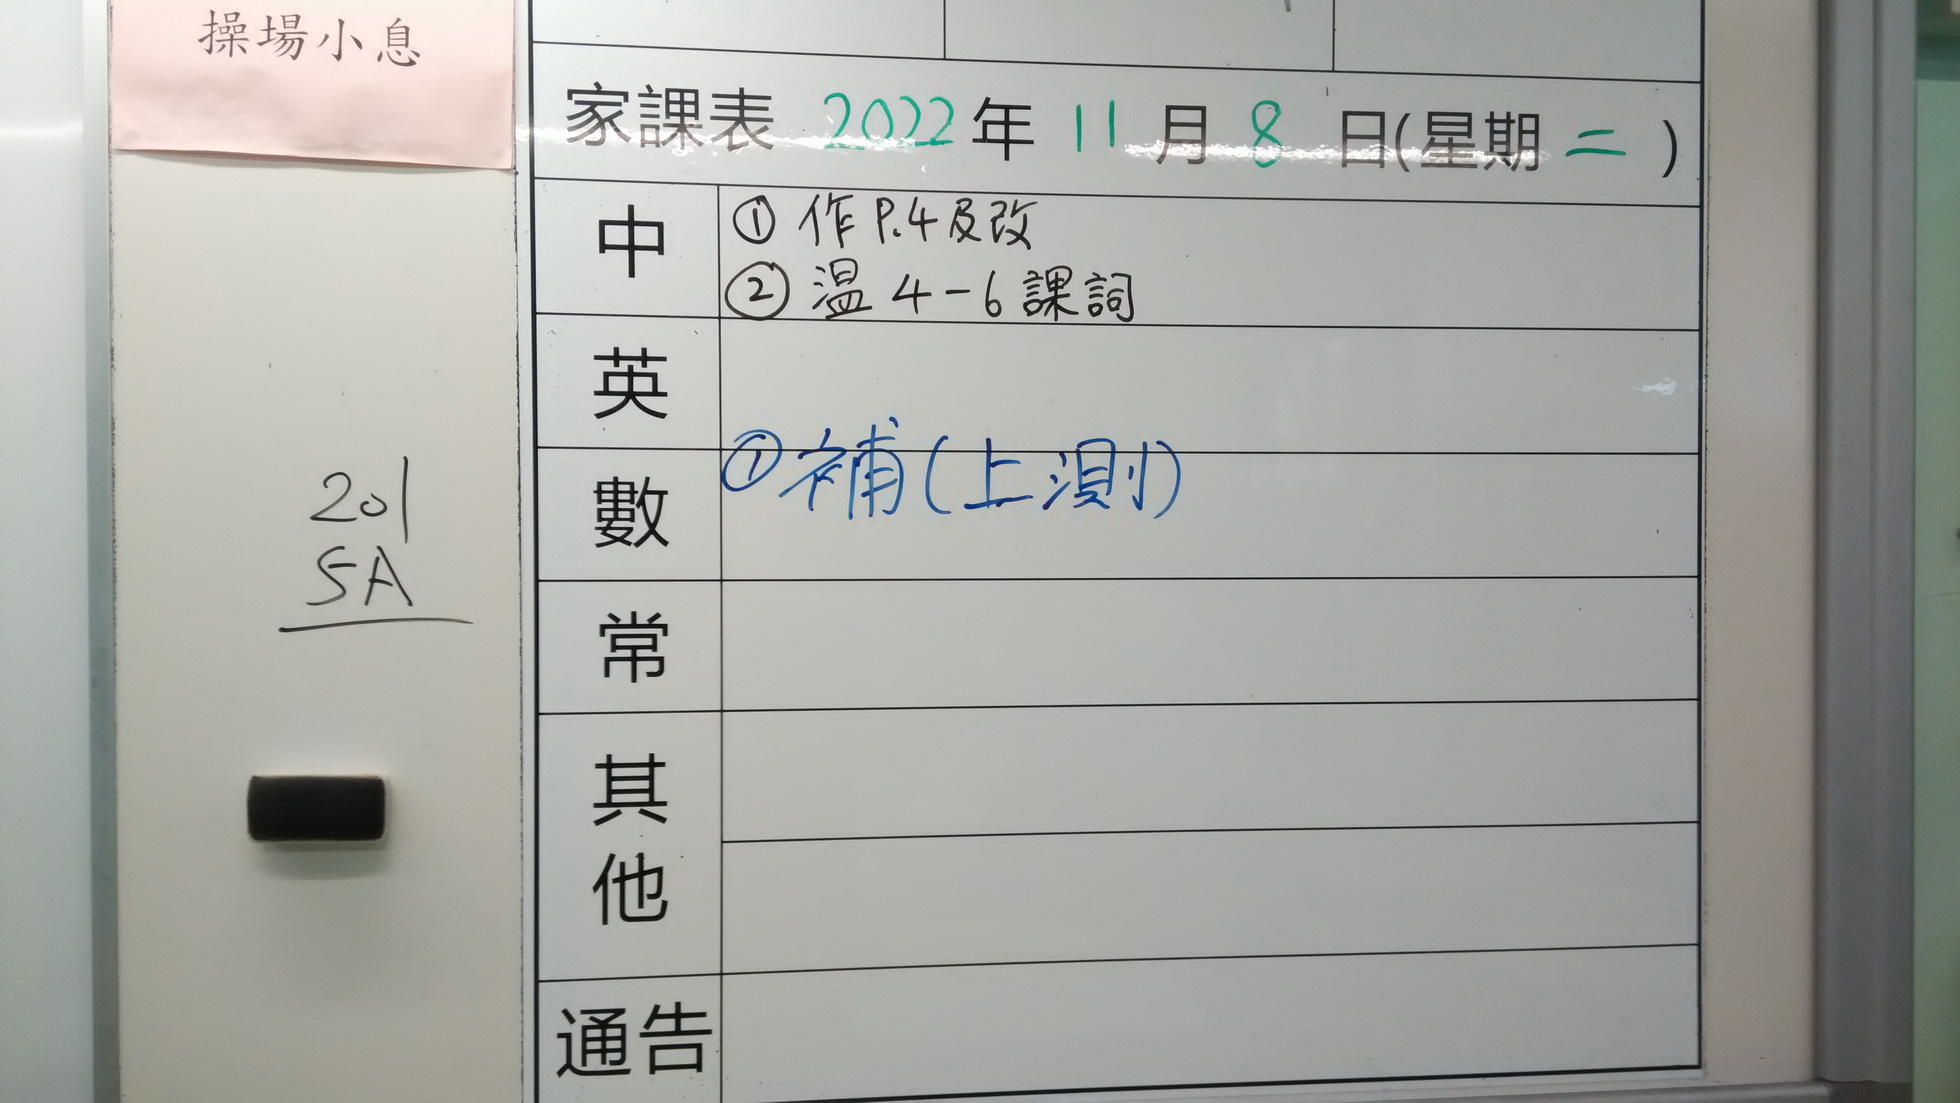 操場小息
家課表 2022年 11月 8日(星期二)
中
① 作 P.4及改
② 温 4-6 課詞
英
數
① 補(上測)
常
其他
通告
201
5A